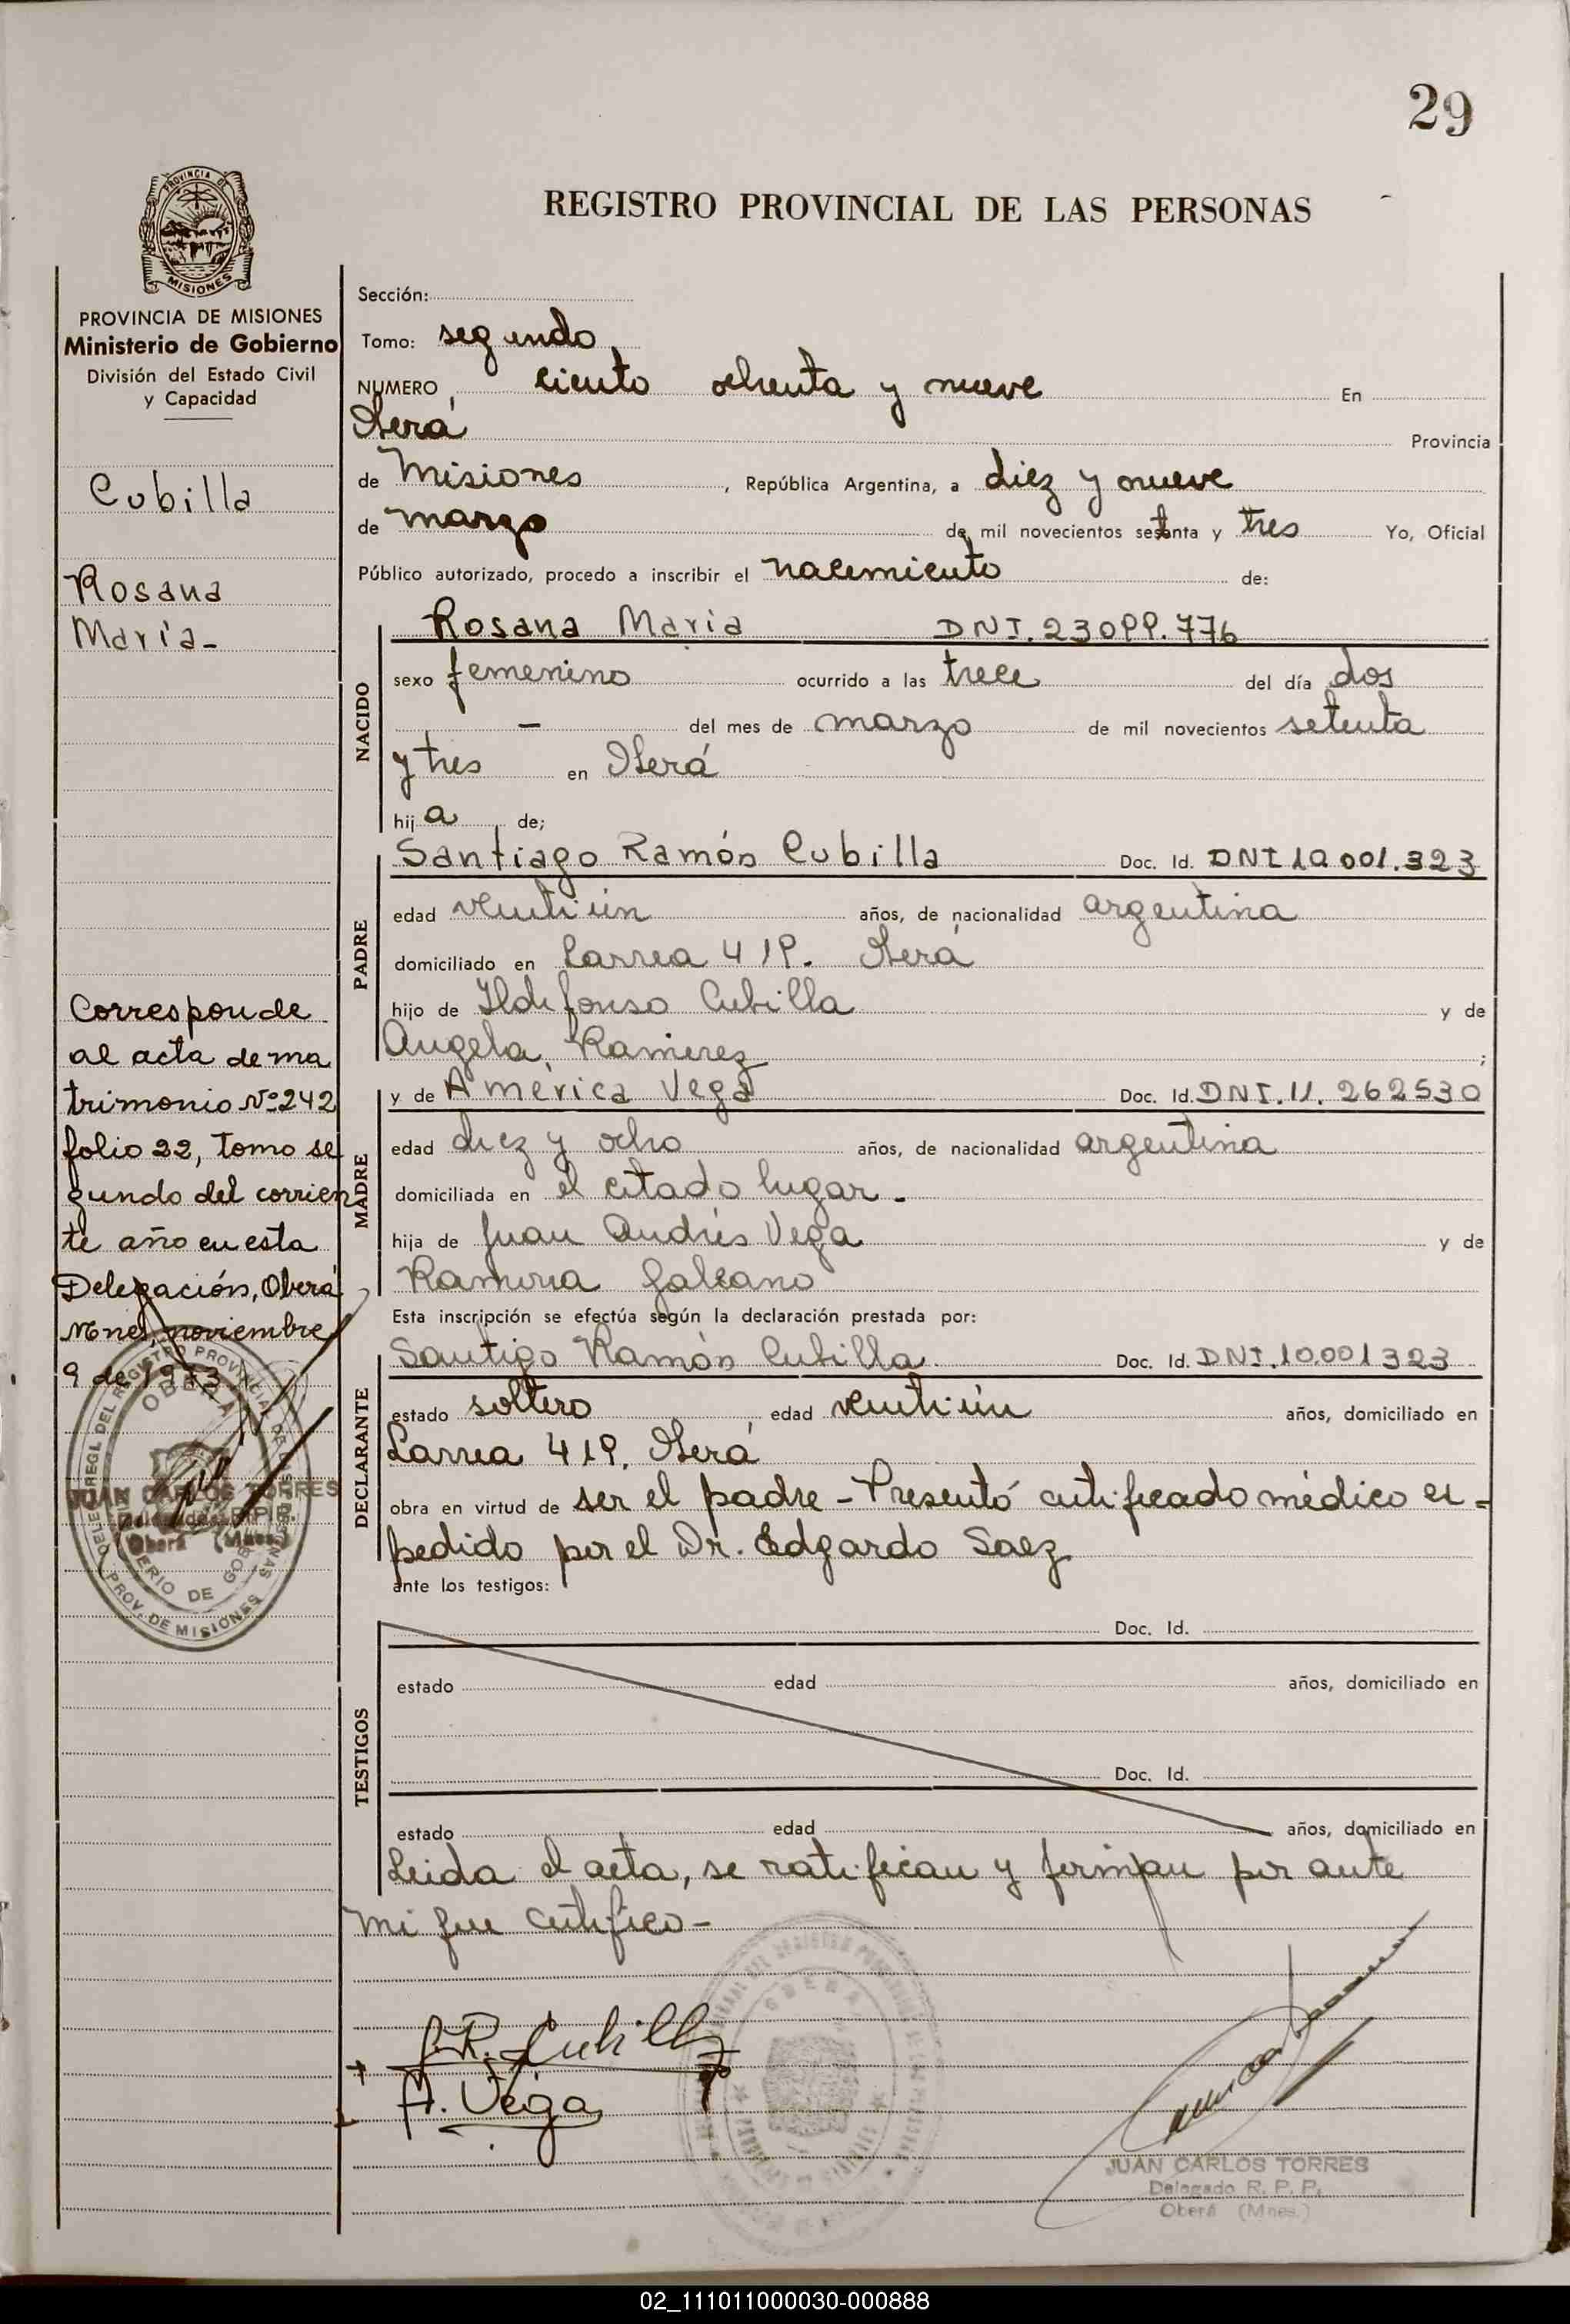 29
REGISTRO PROVINCIAL DE LAS PERSONAS
PROVINCIA DE MISIONES
PROVINCIA DE MISIONES
Ministerio de Gobierno
División del Estado Civil
y Capacidad
Cubilla
Rosana
María-
Corresponde
al acta de ma
trimonio Nº 242
folio 22, tomo se
gundo del corrien
te año en esta
Delegación, Oberá
Mnes, noviembre
9 de 1973
OBERA
JUAN CARLOS TORRES
Delegado R. P. P.
Oberá (Mnes.)
PROV. DE MISIONES
Sección:
Tomo: segundo
NUMERO ciento ochenta y nueve En
Oberá Provincia
de Misiones, República Argentina, a diez y nueve
de marzo de mil novecientos setenta y tres Yo, Oficial
Público autorizado, procedo a inscribir el nacimiento de:
NACIDO
Rosana Maria DNI. 23099.776
sexo femenino ocurrido a las trece del día dos
- del mes de marzo de mil novecientos setenta
y tres en Oberá
hij a de;
PADRE
Santiago Ramón Cubilla Doc. Id. DNI 10 001.323
edad veintiún años, de nacionalidad argentina
domiciliado en Larrea 419. Oberá
hijo de Ildefonso Cubilla y de
Angela Ramirez ;
MADRE
y de América Vega Doc. Id. DNI. 11. 262530
edad diez y ocho años, de nacionalidad argentina
domiciliada en el citado lugar.
hija de Juan Andrés Vega y de
Ramona Galeano
Esta inscripción se efectúa según la declaración prestada por:
DECLARANTE
Santigo Ramón Cubilla Doc. Id. DNI. 10.001323
estado soltero, edad veintiún años, domiciliado en
Larrea 419, Oberá
obra en virtud de ser el padre - Presentó certificado médico ex-
pedido por el Dr. Edgardo Saez
ante los testigos:
TESTIGOS
Doc. Id.
estado edad años, domiciliado en
Doc. Id.
estado edad años, domiciliado en
Leida el acta, se ratifican y firman por ante
mi que certifico-
S.R. Cubilla
A. Vega
JUAN CARLOS TORRES
Delegado R. P. P.
Oberá (Mnes.)
02_111011000030-000888